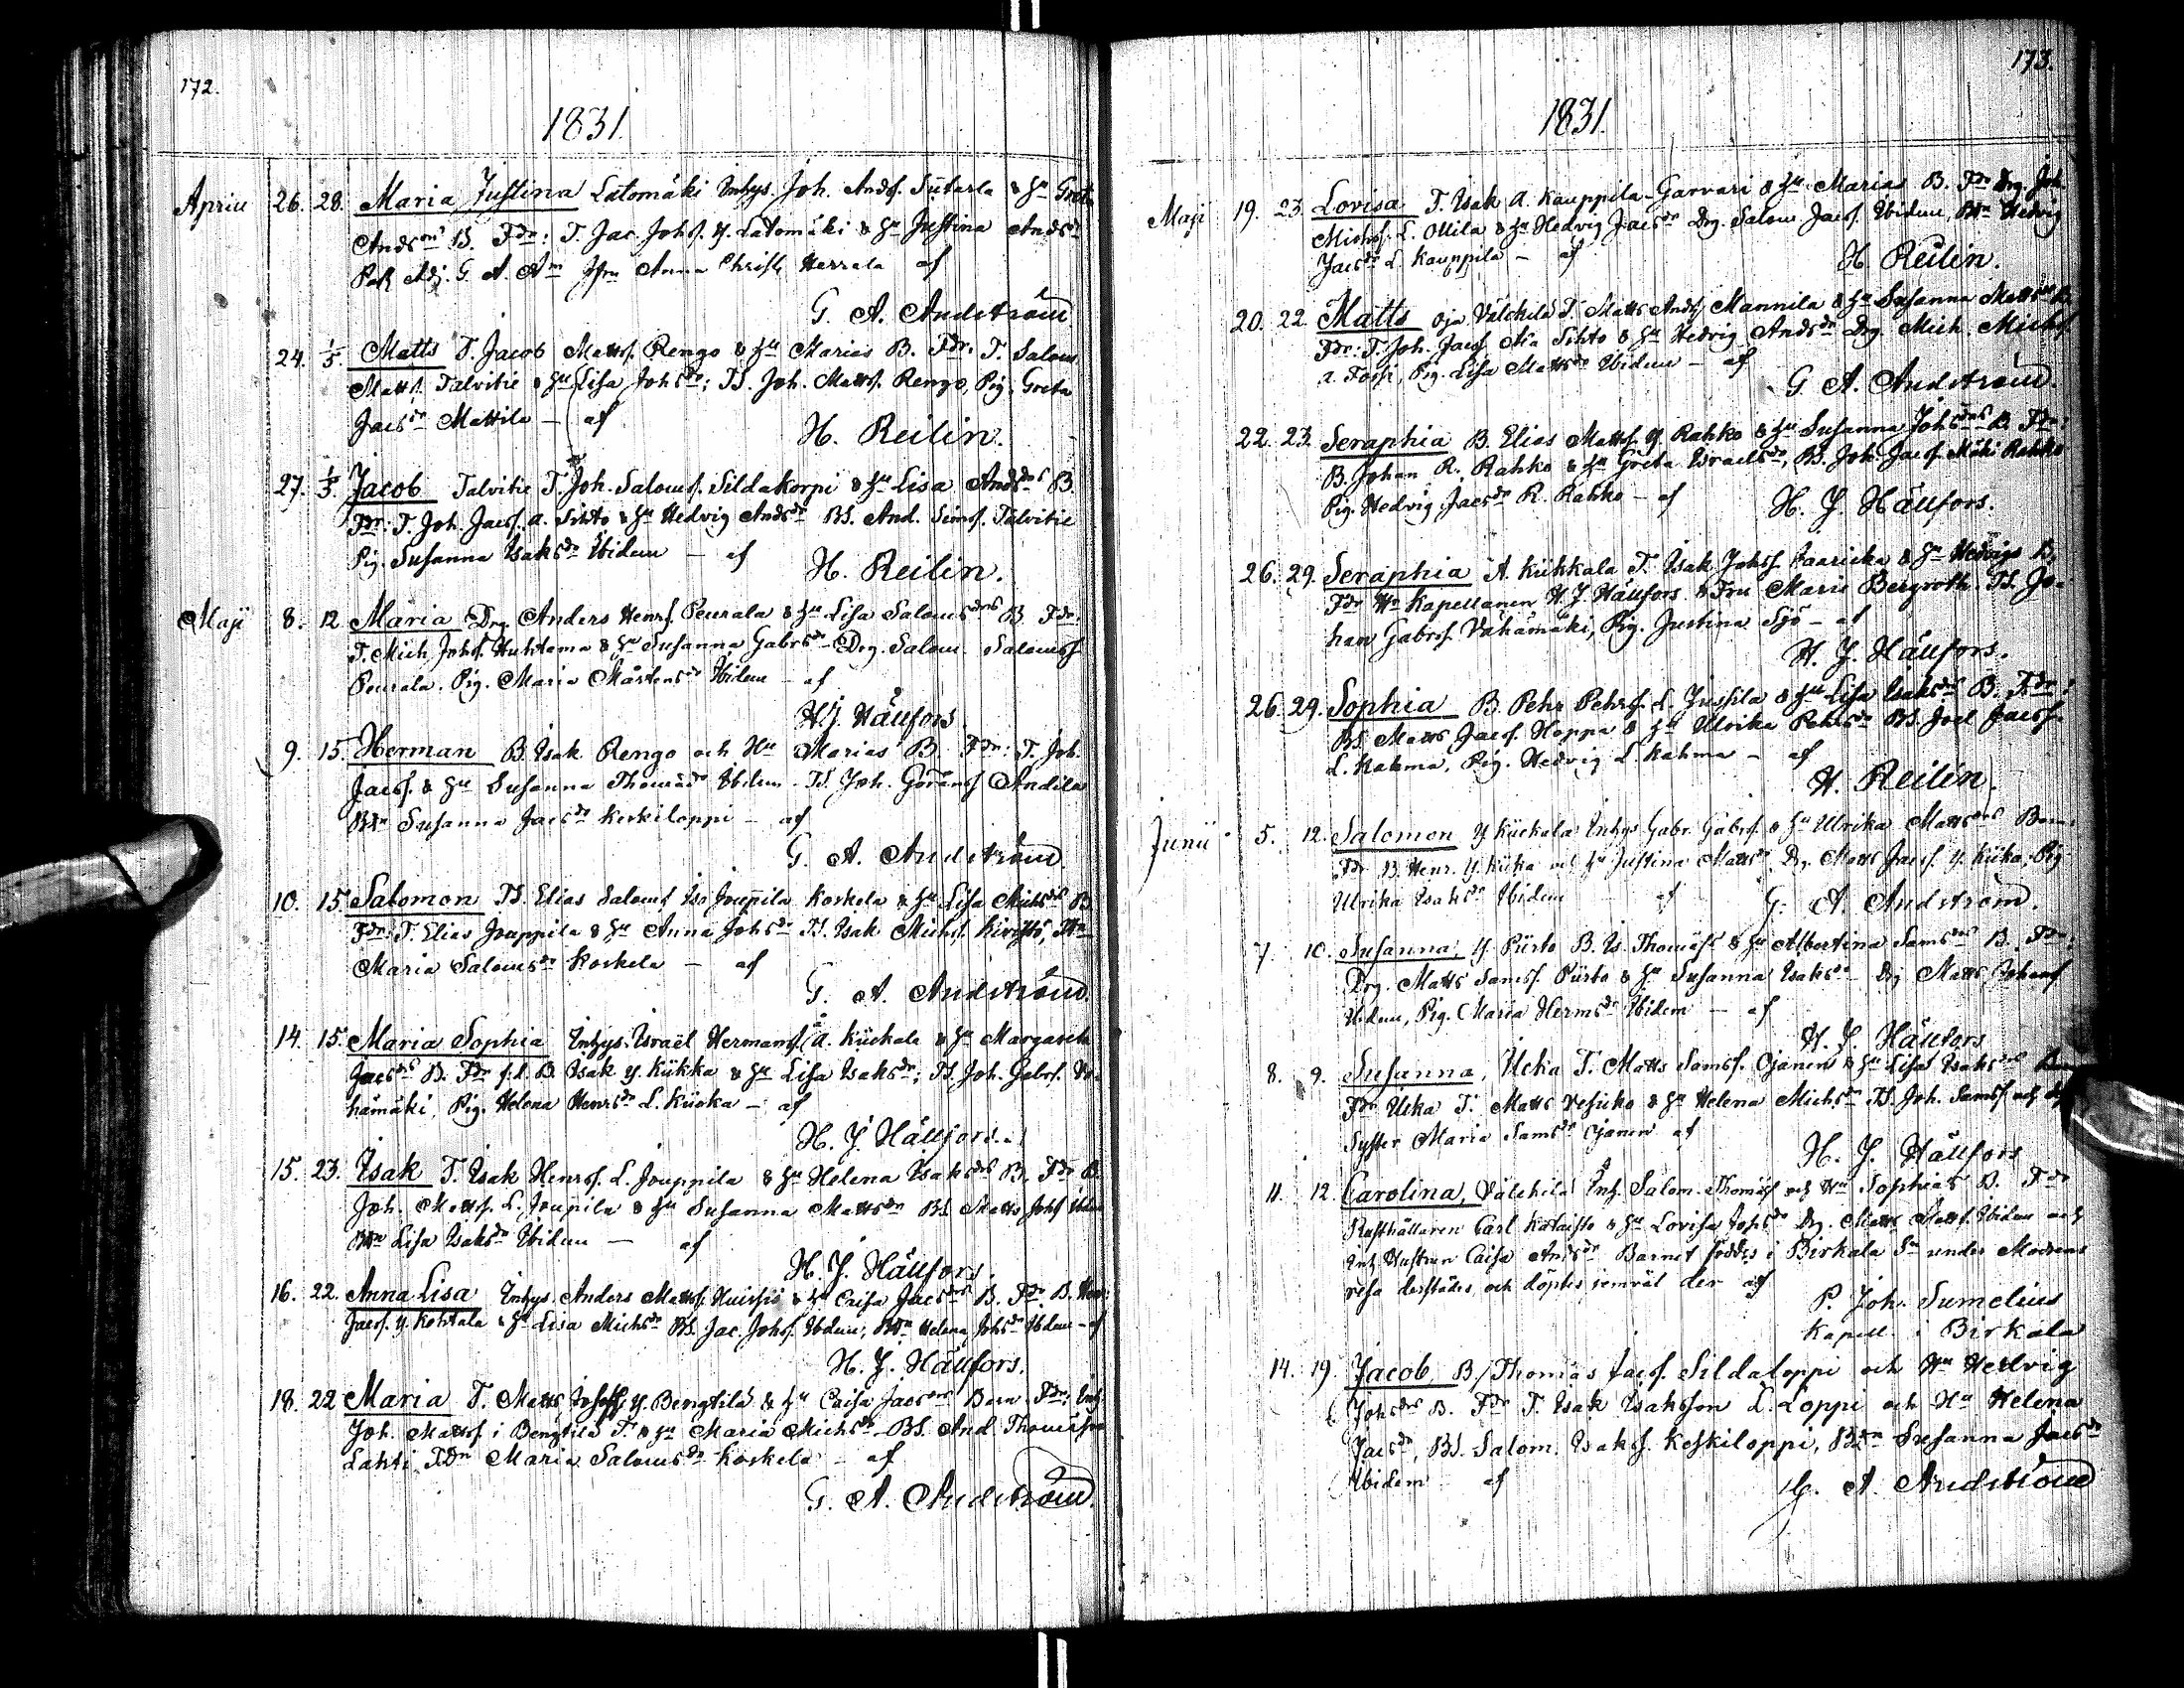 172.
1831.
Aprill 26. 28. Maria Justina Latomäki Inhys. Joh. Andsſ. Sutarla & Hu Greta
Andsdrs B. Fdr: T. Jac. Johsſ. Y. Latomäki & Hu Justina Andsdr
Adj. G. A. Am Jfru Anna Christ. Herrala af
G. A. Andström
24. 1/5. Matts T. Jacob Mattsſ. Rengo & Hu Marias B. Fdr. T. Salom.
Mattsſ. Talvitie & Hu Lisa Johsdr; TS. Joh. Mattsſ. Rengo, Pig. Greta
Jacsdr Mattila – af
H. Reilin.
27. 1/5. Jacob Talvitie T. Joh. Salomsſ. Sildakorpi & Hu Lisa Andsdrs B.
Fdr: T. Joh. Jacsſ. A. Sihto & Hu Hedvig Andsdr BS. And. Simsſ. Talvitie
Pig. Susanna Isaksdr Ibidem – af
H. Reilin.
Maji 8. 12. Maria Drg. Anders Henrsſ. Peurala & Hu Lisa Salomsdrs B. Fdr:
T. Mich. Johsſ. Huhtama & Hu Susanna Gabrsdr – Drg. Salom. Salomsſ.
Peurala. Pig. Maria Mårtensdr Ibidem – af
H. J. Hällfors.
9. 15. Herman B. Isak Rengo och Hu Marias B. Fdr: T. Joh.
Jacsſ. & Hu Susanna Thomasdr Ibidem. TS. Joh. Göransſ. Andila
BDn Susanna Jacsdr Keskiloppi – af
G. A. Andström.
10. 15. Salomon TS. Elias Salomsſ. Iso Jouppila Koskela & Hu Lisa Michsdrs B
Fdr: T. Elias Jouppila & Hu Anna Johsdr TS. Isak Michsſ. Kivistö,
Maria Salomsdr Koskela – af
G. A. Andström.
14. 15. Maria Sophia Inhys. Israël Hermansſ. A. Kückala & Hu Margareta
Jacsdrs B. Fdr f. d. B. Isak Y. Kükka & Hu Lisa Isaksdr; TS. Joh. Gabrsſ. Va-
hämäki, Pig. Helena Henrsdr L. Kücka – af
H. J. Hällfors.
15. 23. Isak T. Isak Henrsſ. L. Jouppila & Hu Helena Isaksdrs B. Fdr B.
Joh. Mattsſ. L. Jouppila & Hu Susanna Mattsdr BS. Matts Johsſ. Ibidem
BDn Lisa Isaksdr Ibidem – af
H. J. Hällfors.
16. 22. Anna Lisa Inhys. Anders Mattsſ. Huissis & Hu Caisa Jacsdrs B. Fdr. B. Henr.
Jacsſ. Y. Kohtala & Hu Lisa Michsdr BS. Jac. Johsſ. Ibidem, BDn Helena Johsdr Ibidem – af
H. J. Hällfors.
18. 22. Maria T. Matts Y. Bengtila & Hu Caisa Jacsdrs Barn. Fdr: Inh.
Joh. Mattsſ. i Bengtila T. & Hu Maria Michsdr – BS. And. Thomasson
Lahti, TDn Maria Salomsdr Koskela – af
G. A. Andström.
173.
1831.
Maji 19. 23. Lovisa T. Isak A. Kauppila-Garvari & Hu Marias B. Fdr Drg. Joh.
Michsſ. L. Ollila & Hu Hedvig Jacsdr Drg. Salom. Jacsſ. Ibidem, BDn Hedvig
Jacsdr L. Kauppila – af
H. Reilin.
20. 22. Matts Oja Välchilä T. Matts Andsſ. Mannila & Hu Susanna Mattsdrs B.
Fdr: T. Joh. Jacsſ. Ala Sihto & Hu Hedvig Andsdr Drg. Mich. Michsſ.
A. Forsi, Pig. Lisa Mattsdr Ibidem – af
G. A. Andström.
22. 23. Seraphia B. Elias Mattsſ. Y. Rahko & Hu Susanna Johsdrs B. Fdr:
B. Johan R. Rahko & Hu Greta Israelsdr, BS. Joh. Jacsſ. Mäki Rahko
Pig. Hedvig Jacsdr R. Rahko – af
H. J. Hällfors.
26. 29. Seraphia A. Kükkala T. Isak Johsſ. Jaaricka & Hu Hedvigs B.
Fdr Hr Kapellanen H. J. Hällfors & Fru Marie Bergroth. TS. Jo-
han Gabrsſ. Vähämäki, Pig. Justina Sjö – af
H. J. Hällfors.
26. 29. Sophia B. Pehr Pehrsſ. L. Jussila & Hu Lisa Isaksdrs B. Fdr:
BS. Matts Jacsſ. Hoppa & Hu Ulrika Pehrsdr BS. Joel Jacsſ.
L. Kahma, Pig. Hedvig L. Kahma – af
H. Reilin.
Junii 5. 12. Salomon Y. Kückala Inhys Gabr. Gabrsſ. & Hu Ulrika Mattsdrs Barn.
Fdr B. Henr. Y. Kücka och Hu Justina Mattsdr Drg. Matts Jacsſ. Y. Kücka, Pig
Ulrika Isaksdr Ibidem af
G. A. Andström.
7. 10. Susanna, Y. Pürto B. Is. Thomasſ. & Hu Albertina Samsdrs B. Fdr:
Drg. Matts Samsſ. Pürto & Hu Susanna Isaksdr – Drg Matts Johansſ
Ibidem, Pig. Maria Hermsdr Ibidem – af
H. J. Hällfors
8. 9. Susanna, Ucka T. Matts Samsſ. Ojanen & Hu Lisas Isaksdrs Barn
Fdr Ucka T. Matts Vesicko & Hu Helena Michsdr TS. Joh. Samsſ. och dess
Syster Maria Samsdr Ojanen af
H. J. Hällfors
11. 12. Carolina, Välchilä Inh. Salom. Thomasſ och Hu Sophias B. Fdr
Rusthållaren Carl Kataisto & Hu Lovisa Johsdr Drg. Matts Mattsſ. Ibidem och
Inh. Hustrun Caisa Andsdr Barnet föddes i Birkala Sn under Modrens
resa derstädes, och döptes jemväl der af
P. Joh. Sumelius
Kapell. i Birkala
14. 19. Jacob, B. Thomas Jacsſ. Sildaloppi och Hu Hedvig
Johsdrs B. Fdr T. Isak Isaksson L. Loppi och Hu Helena
Jacsdr, BS. Salom. Isaksſ. Keskiloppi, BDn Susanna Jacsdr
Ibidem af
G. A. Andström